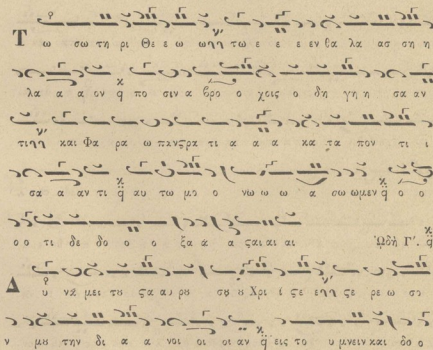 Τω σω τη ρι Θε ε ω ω τω ε ε ε εν θα λα ασ ση η
λα α α ον q πο σιν α βρο ο χοις ο δη γη η σα αν
τι και Φα ρα ω πανςρα τι α α α κα τα πον τι ι
σα α αν τι q αυ τω μο ο νω ω ω α σω ωμεν q ο ο
ο ο τι δε δο ο ο ξα α α ςαι αι αι Ὠδὴ Γʹ. q
Δυ να μει τȣ ςα αυ ρȣ σȣ ȣ Χρι ι ςε ε ςε ρε ω σο
ν μȣ την δι α α νοι οι οι αν q εις το υ μνειν και δο ο